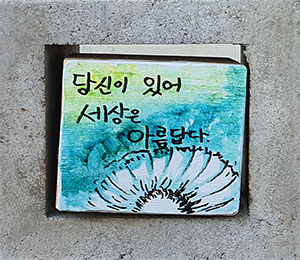 당신이 있어
세상은
아름답다.